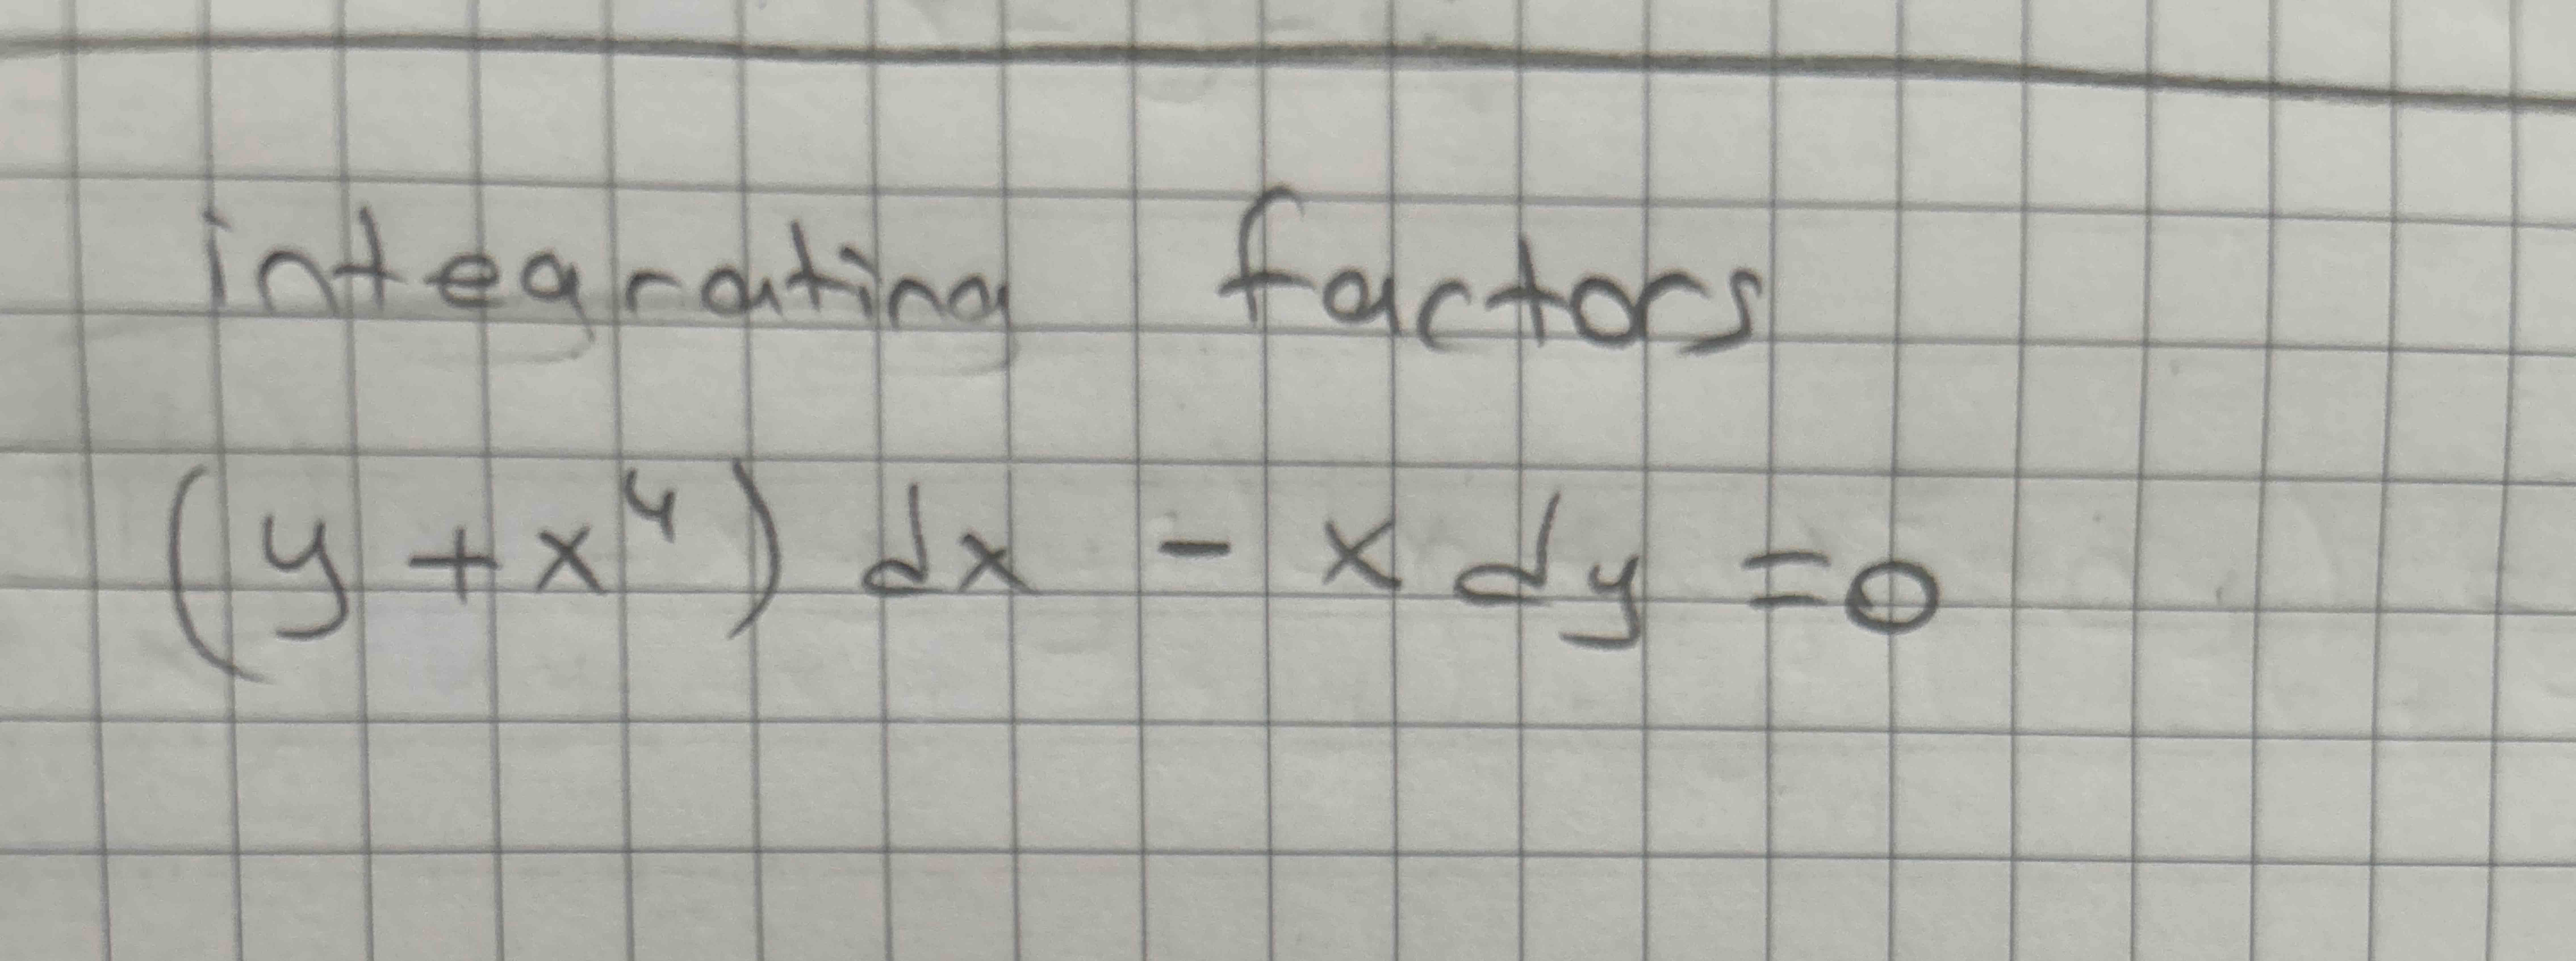 integrating factors
(y + x⁴) dx - x dy = 0